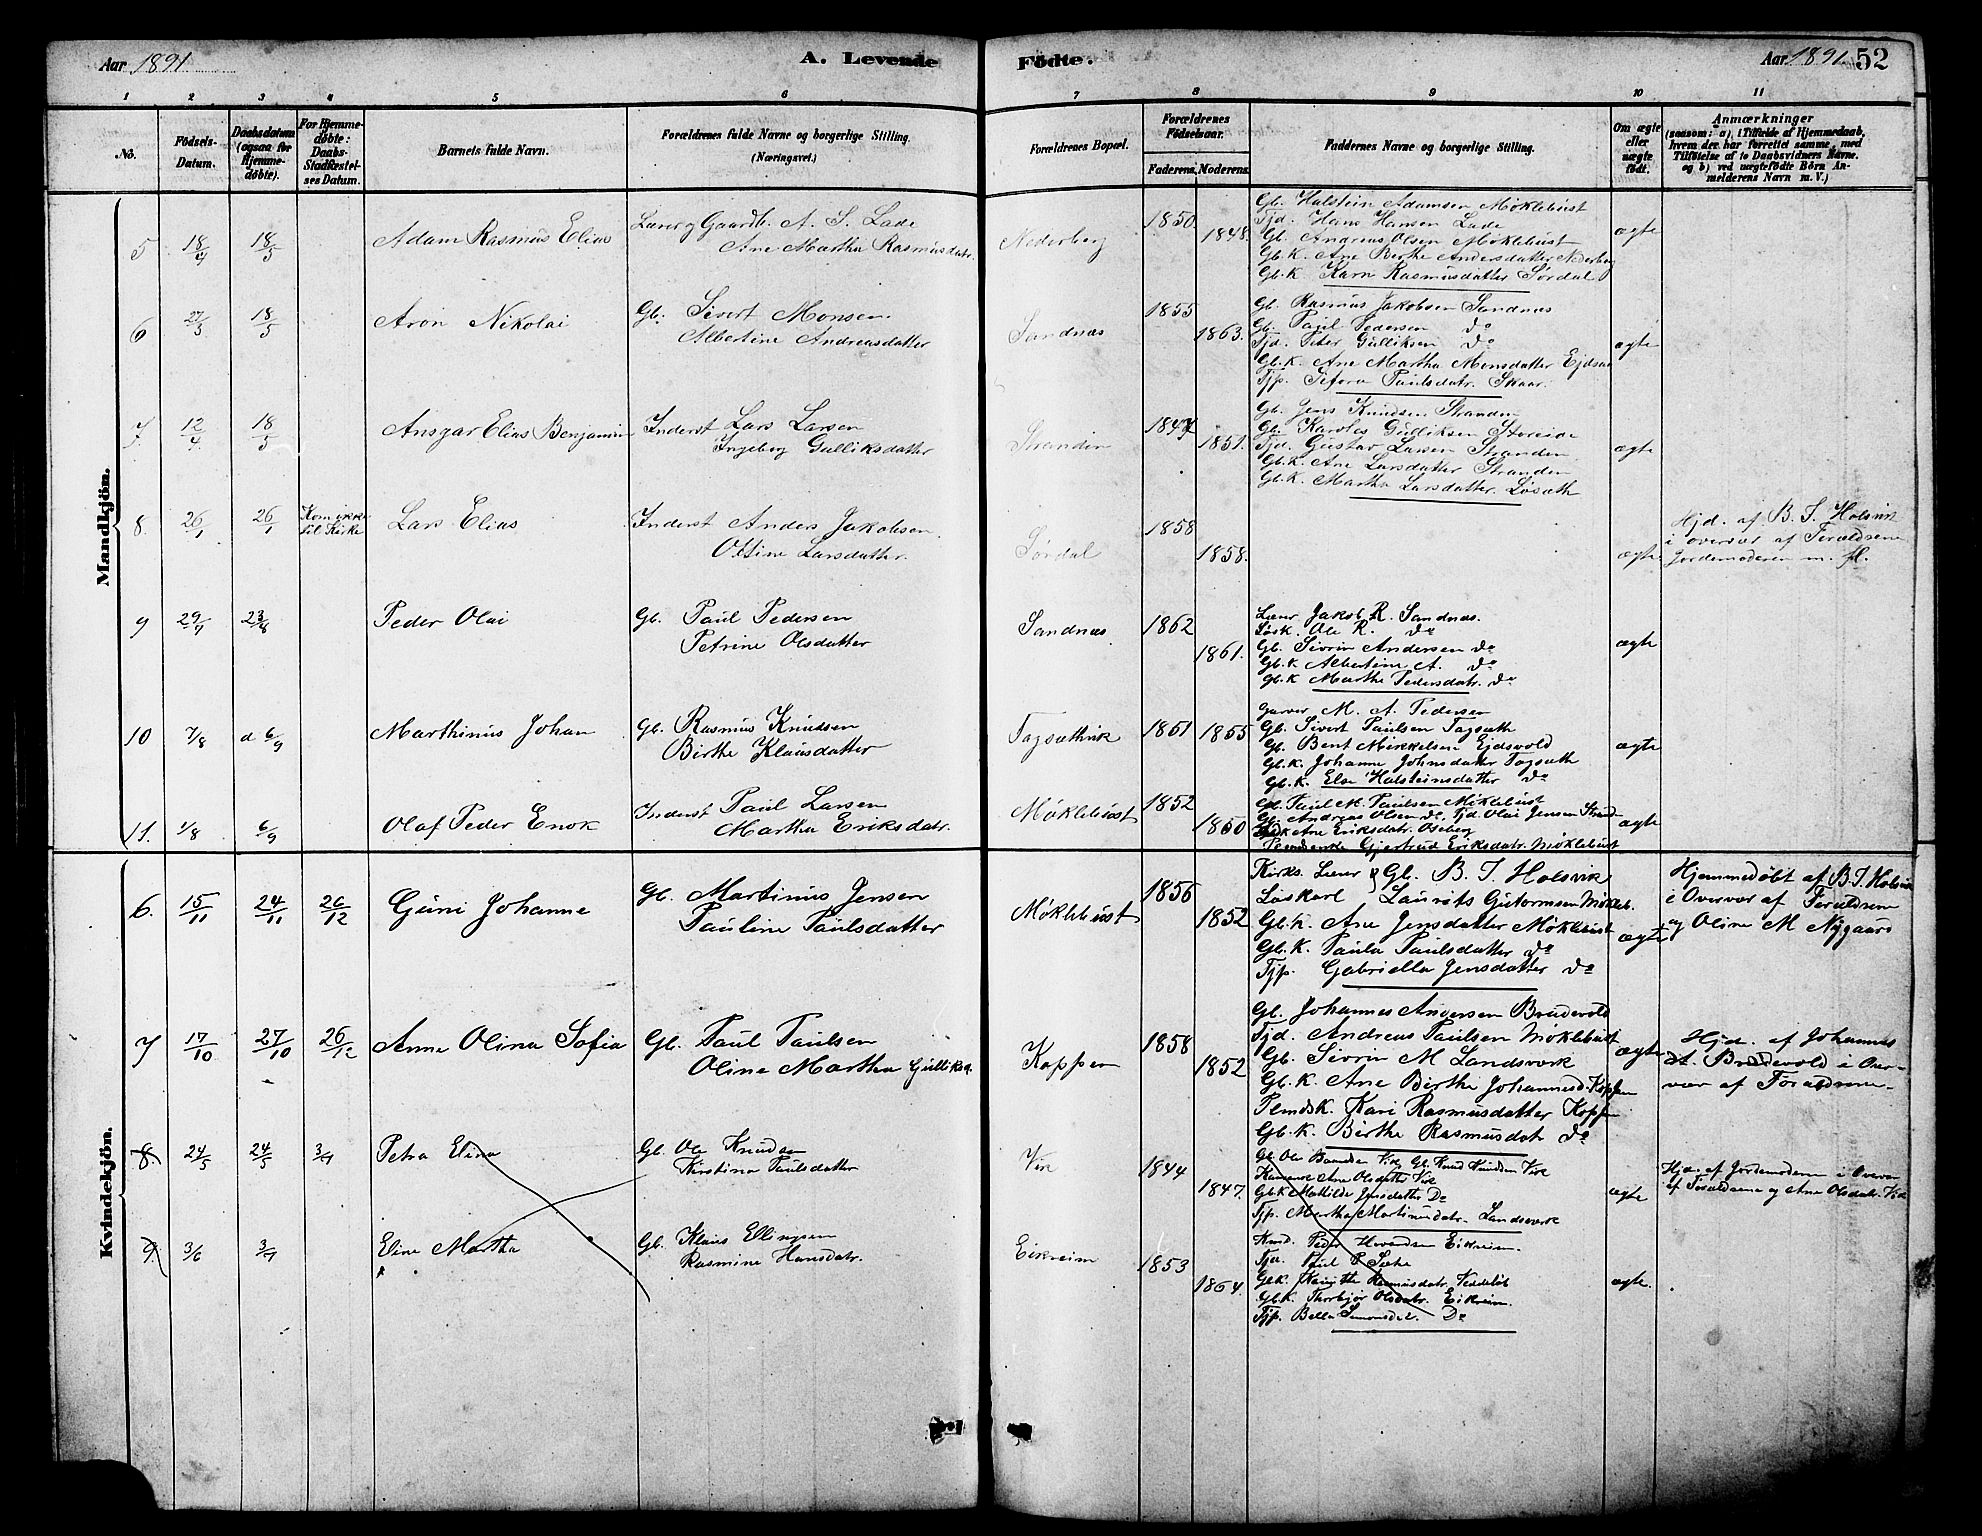 Aar 1891
A. Levende
Födte.
Aar 1891 52
1 2 3 4 5 6 7 8 9 10 11
No.
Födsels-Datum.
Daabsdatum (ogsaa for Hjemmedöbte).
For Hjemmedöbte: Daabs-Stadfæstelses Datum.
Barnets fulde Navn.
Forældrenes fulde Navne og borgerlige Stilling. (Næringsvei.)
Forældrenes Bopæl.
Forældrenes Födselsaar.
Faderens. Moderens.
Faddernes Navne og borgerlige Stilling.
Om ægte eller uægte födt.
Anmærkninger
(saasom: a) i Tilfælde af Hjemmedaab, hvem der har forrettet samme, med Tilföielse af to Daabsvidners Navne. og b) ved uægtefödte Börn Anmelderens Navn m. V.)
Mandkjön.
5 18/4 18/5 Adam Rasmus Elias
Lærer og Gaardb. A. S. Lade
Ane Martha Rasmusdatr.
Nederberg 1850 1848.
Gb. Halstein Adamsen Møklebust
Tjd. Hans Hansen Lade
Gb. Andreas Olsen Møklebust
Gb.K. Ane Birthe Andersdatter Nederberg
Gb.K. Karn Rasmusdatter Sørdal
ægte
6 27/3 18/5 Aron Nikolai
Gb. Sivert Monsen
Albertine Andreasdatter
Sandnæs 1855 1863.
Gb. Rasmus Jakobsen Sandnæs
Gb. Paul Pedersen do
Tjd. Peter Gulliksen do
Gb.K. Ane Martha Monsdatter
Tjp. Sefora Paulsdatr. Skaar.
ægte
7. 12/4 18/5 Ansgar Elias Benjamin
Inderst Lars Larsen
Ingeborg Gulliksdatter
Stranden 1847 1851.
Gb. Jens Knudsen Stranden
Gb. Karolus Gulliksen Storeide
Tjd. Gustav Larsen Stranden
Gb.K. Ane Larsdatter Stranden
Gb.K. Martha Larsdatter. Løsæth
ægte
8. 26/1 26/1 Kom ikke til Kirke Lars Elias
Inderst Anders Jakobsen
Oltine Larsdatter.
Sørdal 1858 1858.
ægte
Hjd. af B. J. Holsvik
i overvær af Forældrene
Jordemoderen m. fl.
9 29/4 23/8 Peder Olai
Gb. Paul Pedersen
Petrine Olsdatter
Sandnæs 1862 1861.
Lærer Jakob R. Sandnæs.
Løsk. Ole R. do
Gb. Sivrin Andersen do
Gb.K Albertine A. do
Gb.K Marthe Pedersdatr. do
ægte
10 7/8 d 6/9 Marthinus Johan
Gb. Rasmus Knudsen
Birthe Klausdatter
Tagsæthvik 1861 1855
Garver M. A. Pedersen
Gb. Sivert Paulsen Tagsæth
Gb. Bent Mikkelsen Ejdsvold
Gb.K. Johanne Johnsdatter Tagsæth
Gb.K. Else Halsteinsdatter do
ægte
11. 1/8 6/9 Olaf Peder Enok
Inderst Paul Larsen
Martha Eriksdatr.
Møklebust 1852 1850
Gb. Paul M. Paulsen Møklebust
Gb. Andreas Olsen do, Tjd. Olai Jensen Strand
Ane Eriksdatr. Oseberg
Gjertrud Eriksdatr. Møklebust
ægte
Kvindekjön.
6. 15/11 24/11 26/12 Guni Johanne
Gb. Martinus Jensen
Pauline Paulsdatter
Møklebust 1856 1852
Kirks. Lærer & Gb. B. J. Holsvik
Løskarl Laurits Guttormsen Mökleb.
Gb.K. Ane Jensdatter Møklebust
Gb.K. Paula Paulsdatter do
Tjp. Gabriella Jensdatter do
ægte
Hjemmedøbt af B. J. Holsvik
i Overvær af Forældrene
og Oline M Nygaard
7 17/10 27/10 26/12 Anne Olina Sofia
Gb. Paul Paulsen
Oline Martha Gulliksd.
Koppen 1858 1852
Gb. Johannes Andersen Brudevold
Tjd. Andreas Paulsen Møklebust
Gb. Sivrin M Landsverk
Gb.K. Ane Birthe Johannesd. Koppen
Pemdsk. Kari Rasmusdatter Koppen
Gb.K. Birthe Rasmusdatr do
ægte
Hjd. af Johannes
A. Brudevold i Over-
vær af Forældrene.
8. 24/5 24/5 3/9 Petra Elina
Gb. Ole Knudsen
Kirstina Paulsdatter
Vik 1844 1847.
Gb. Ole Vik, Gb. Knud Knudsen Vik
Ane Olsdatter Vik
Gb.K Mathilde Jensdatter Do
Tjp. Martha Martinusdatr. Landsverk
ægte
Hjd. af Jordemoderen i Overvær
af Forældrene og Ane Olsdatr. Vik
9. 3/6 3/9 Eline Martha
Gb. Klaus Ellingsen
Rasmine Hansdatr.
Eikreim 1853 1864.
Peder Eikreim.
Tjd. Paul P Sæthe
Gb.K. Rasmusdatr.
Gb.K. Thorbjør Olsdatr. Eikreim.
Tjp. Bella Simonsdat. Do
ægte.